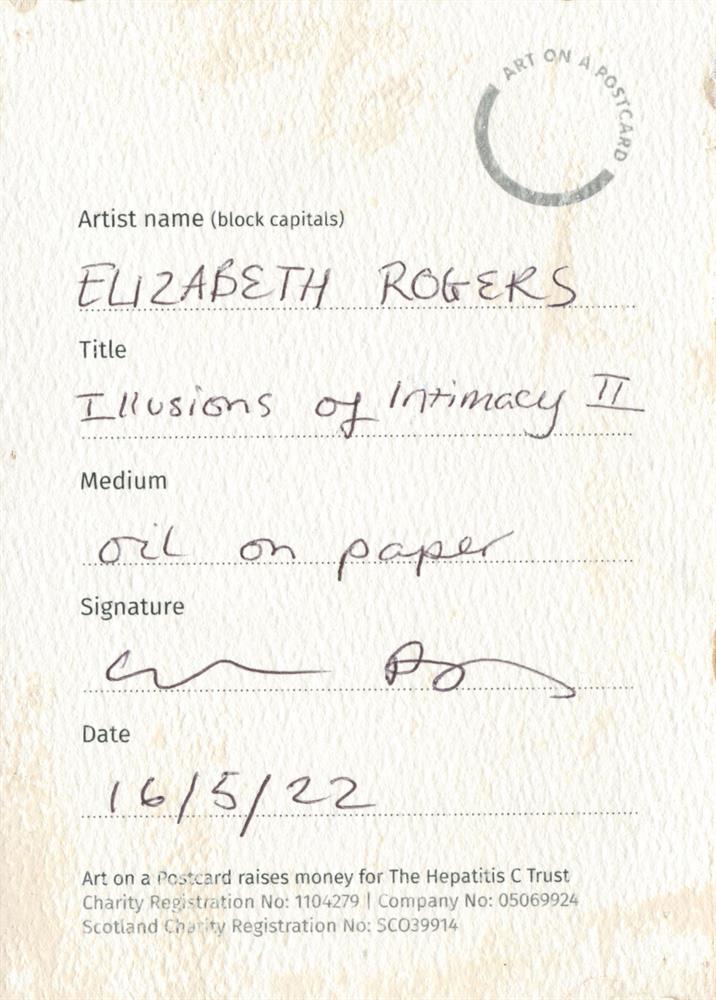 ART ON A POSTCARD
Artist name (block capitals)
ELIZABETH ROGERS
Title
Illusions of Intimacy II
Medium
oil on paper
Signature
Date
16/5/22
Art on a Postcard raises money for The Hepatitis C Trust
Charity Registration No: 1104279 | Company No: 05069924
Scotland Charity Registration No: SCO39914